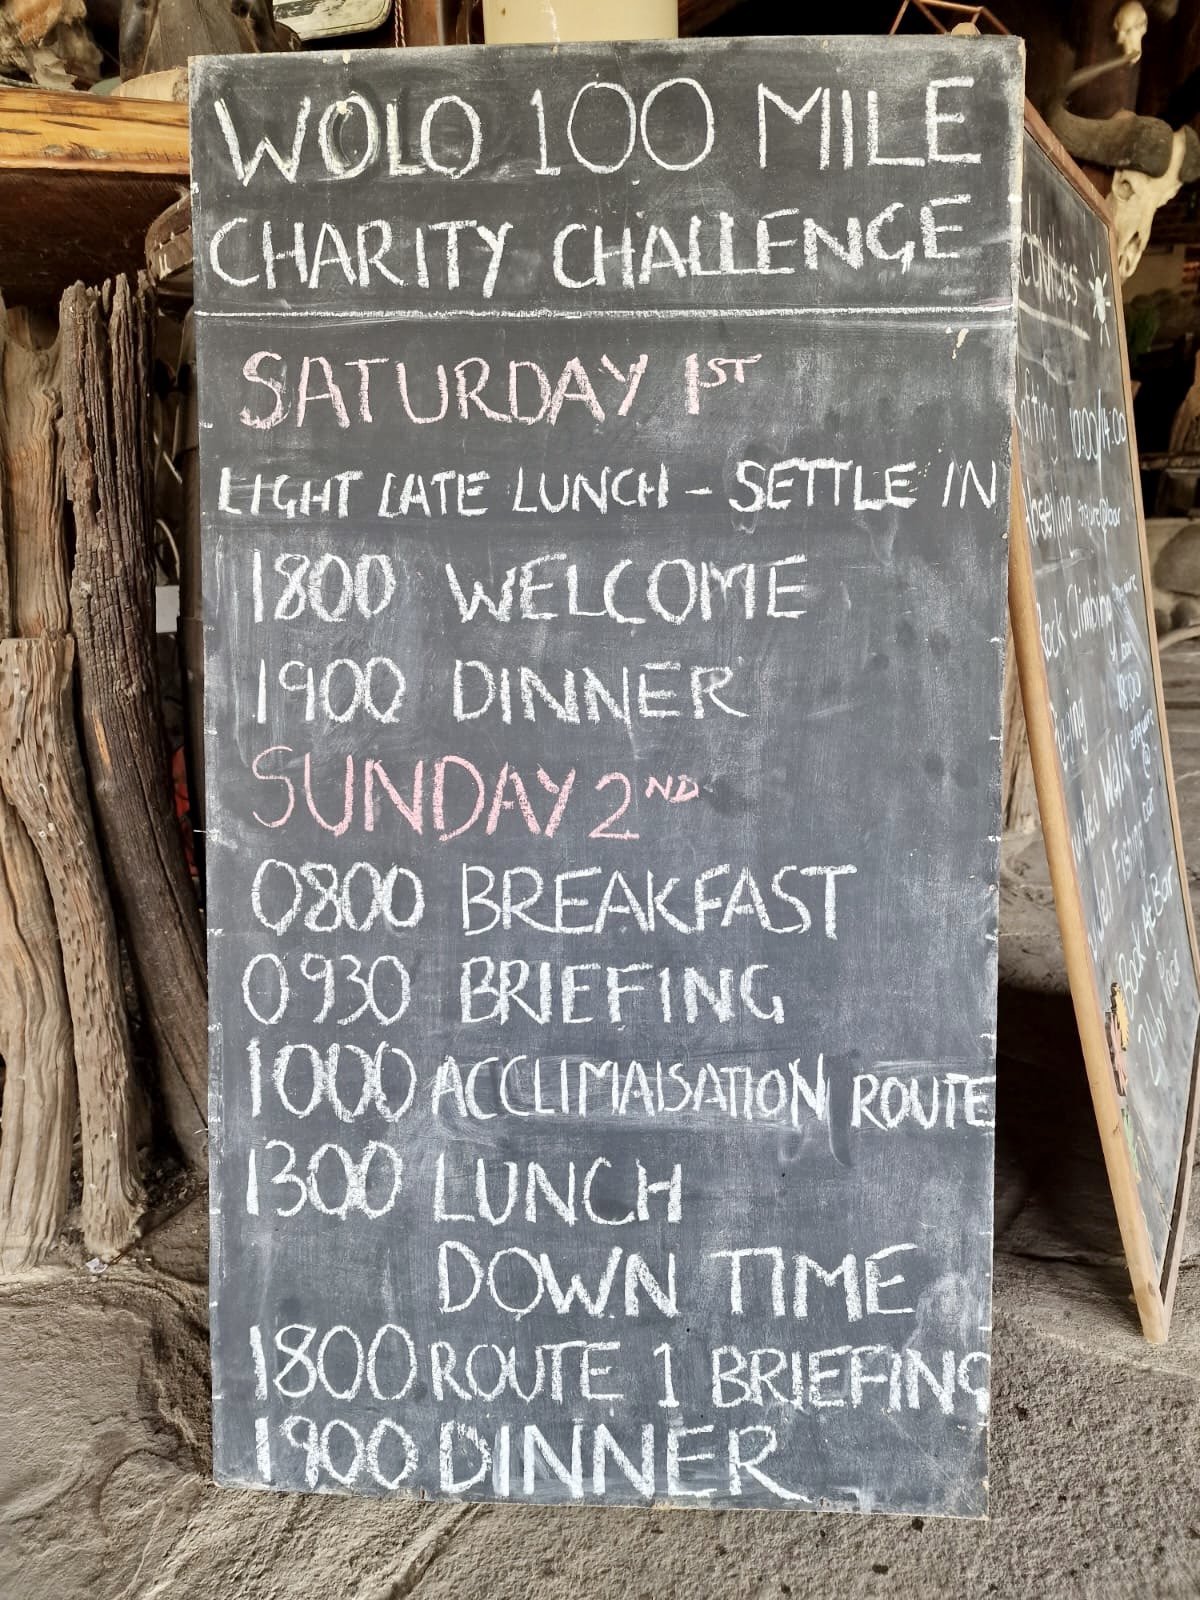 WOLO 100 MILE
CHARITY CHALLENGE
SATURDAY 1ST
LIGHT LATE LUNCH - SETTLE IN
1800 WELCOME
1900 DINNER
SUNDAY 2ND
0800 BREAKFAST
0930 BRIEFING
1000 ACCLIMAISATION ROUTE
1300 LUNCH
DOWN TIME
1800 ROUTE 1 BRIEFING
1900 DINNER
Climbing
Walk
Bar